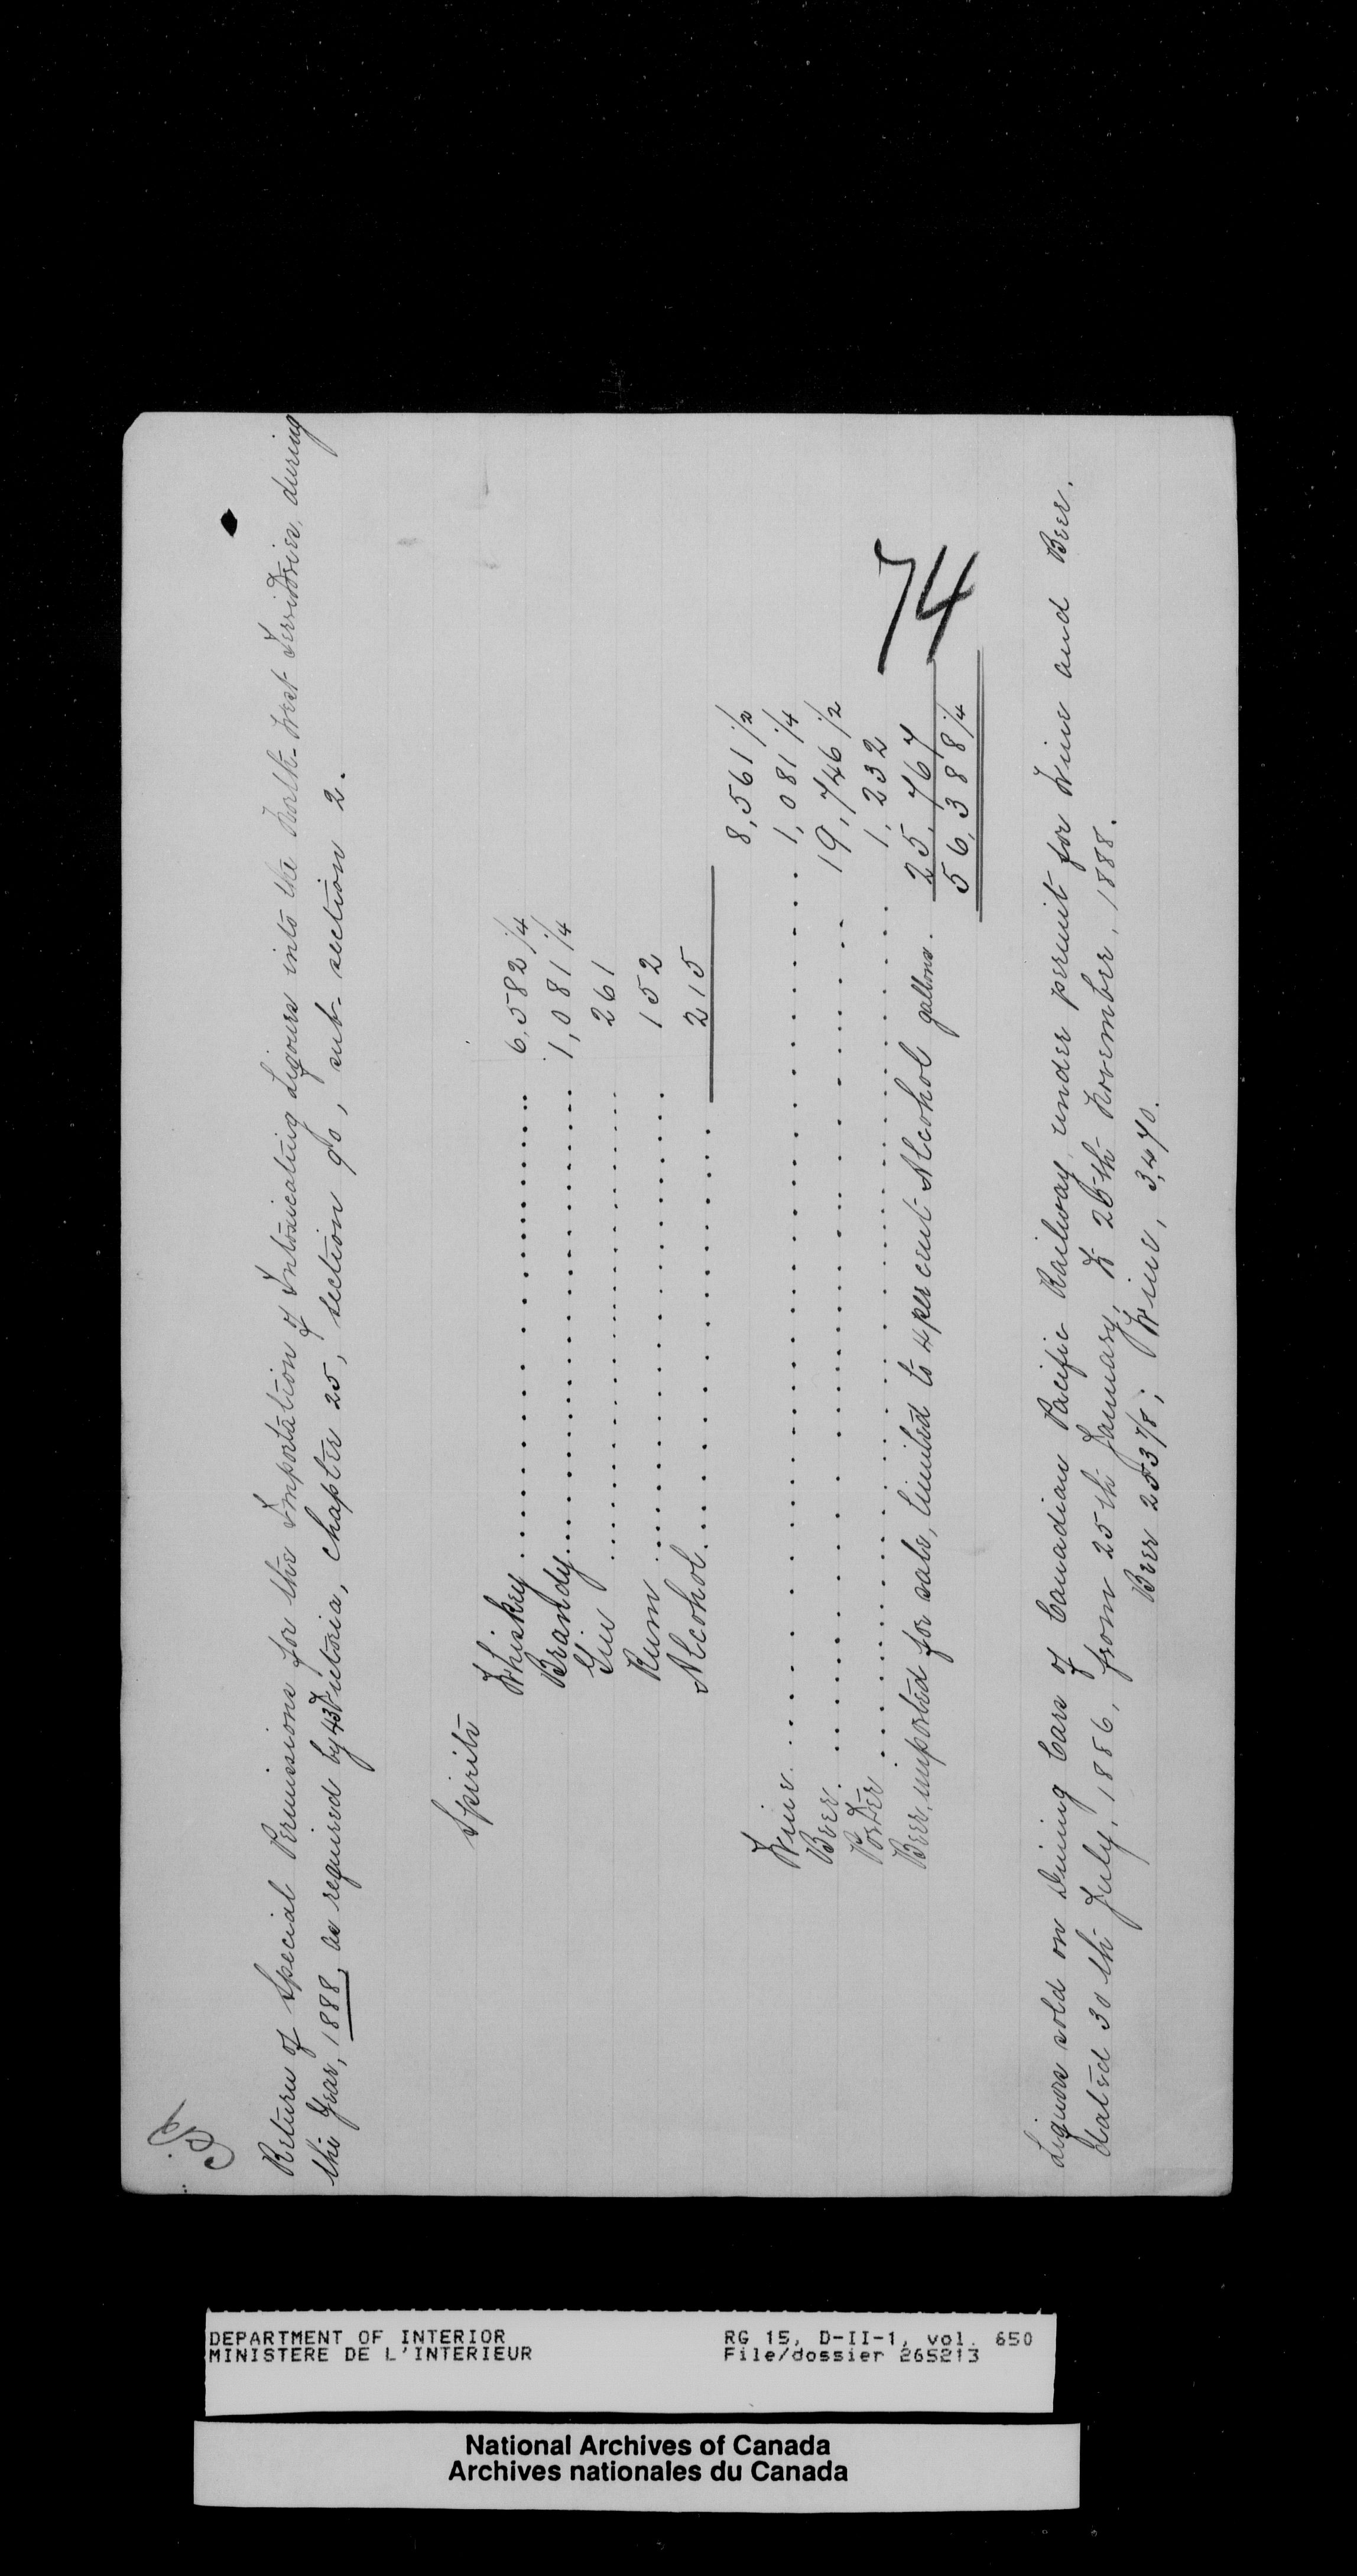 B.
Return of Special Permissions for the Importation of Intoxicating Liquors into the North-West Territories, during
the Year, 1888, as required by 43 Victoria, Chapter 25, section 90, sub-section 2.
Spirits
Whiskey .......... 6,582 1/4
Brandy .......... 1,081 1/4
Gin .......... 261
Rum .......... 152
Alcohol .......... 215
8,561 1/2
Wine .......... 1,081 1/4
Beer .......... 19,746 1/2
Porter .......... 1,232
Beer, imported for sale, limited to 4 per cent Alcohol gallons. 25,767
56,388 1/4
74
Liquors sold on Dining Cars of Canadian Pacific Railway, under permit for Wine and Beer,
dated 30th July, 1886, from 25th January, to 26th November, 1888.
Beer 253 7/8; Wine, 3,470.
DEPARTMENT OF INTERIOR
MINISTERE DE L'INTERIEUR
RG 15, D-II-1, vol. 650
File/dossier 265213
National Archives of Canada
Archives nationales du Canada